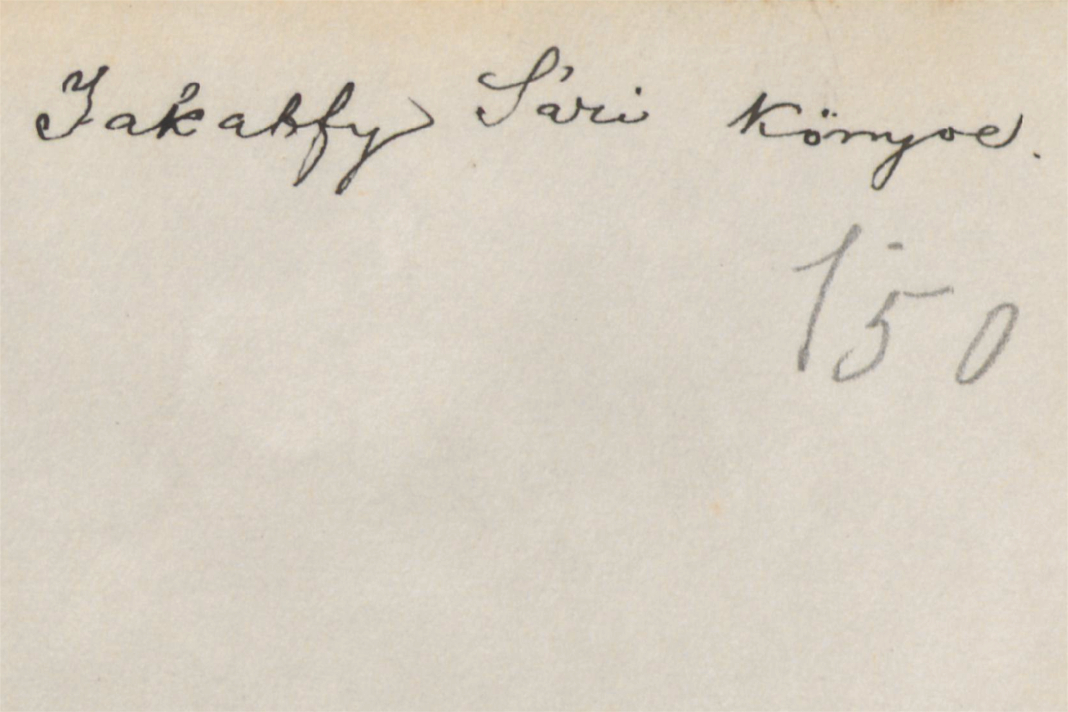 Jakabfy Sári könyve.
150